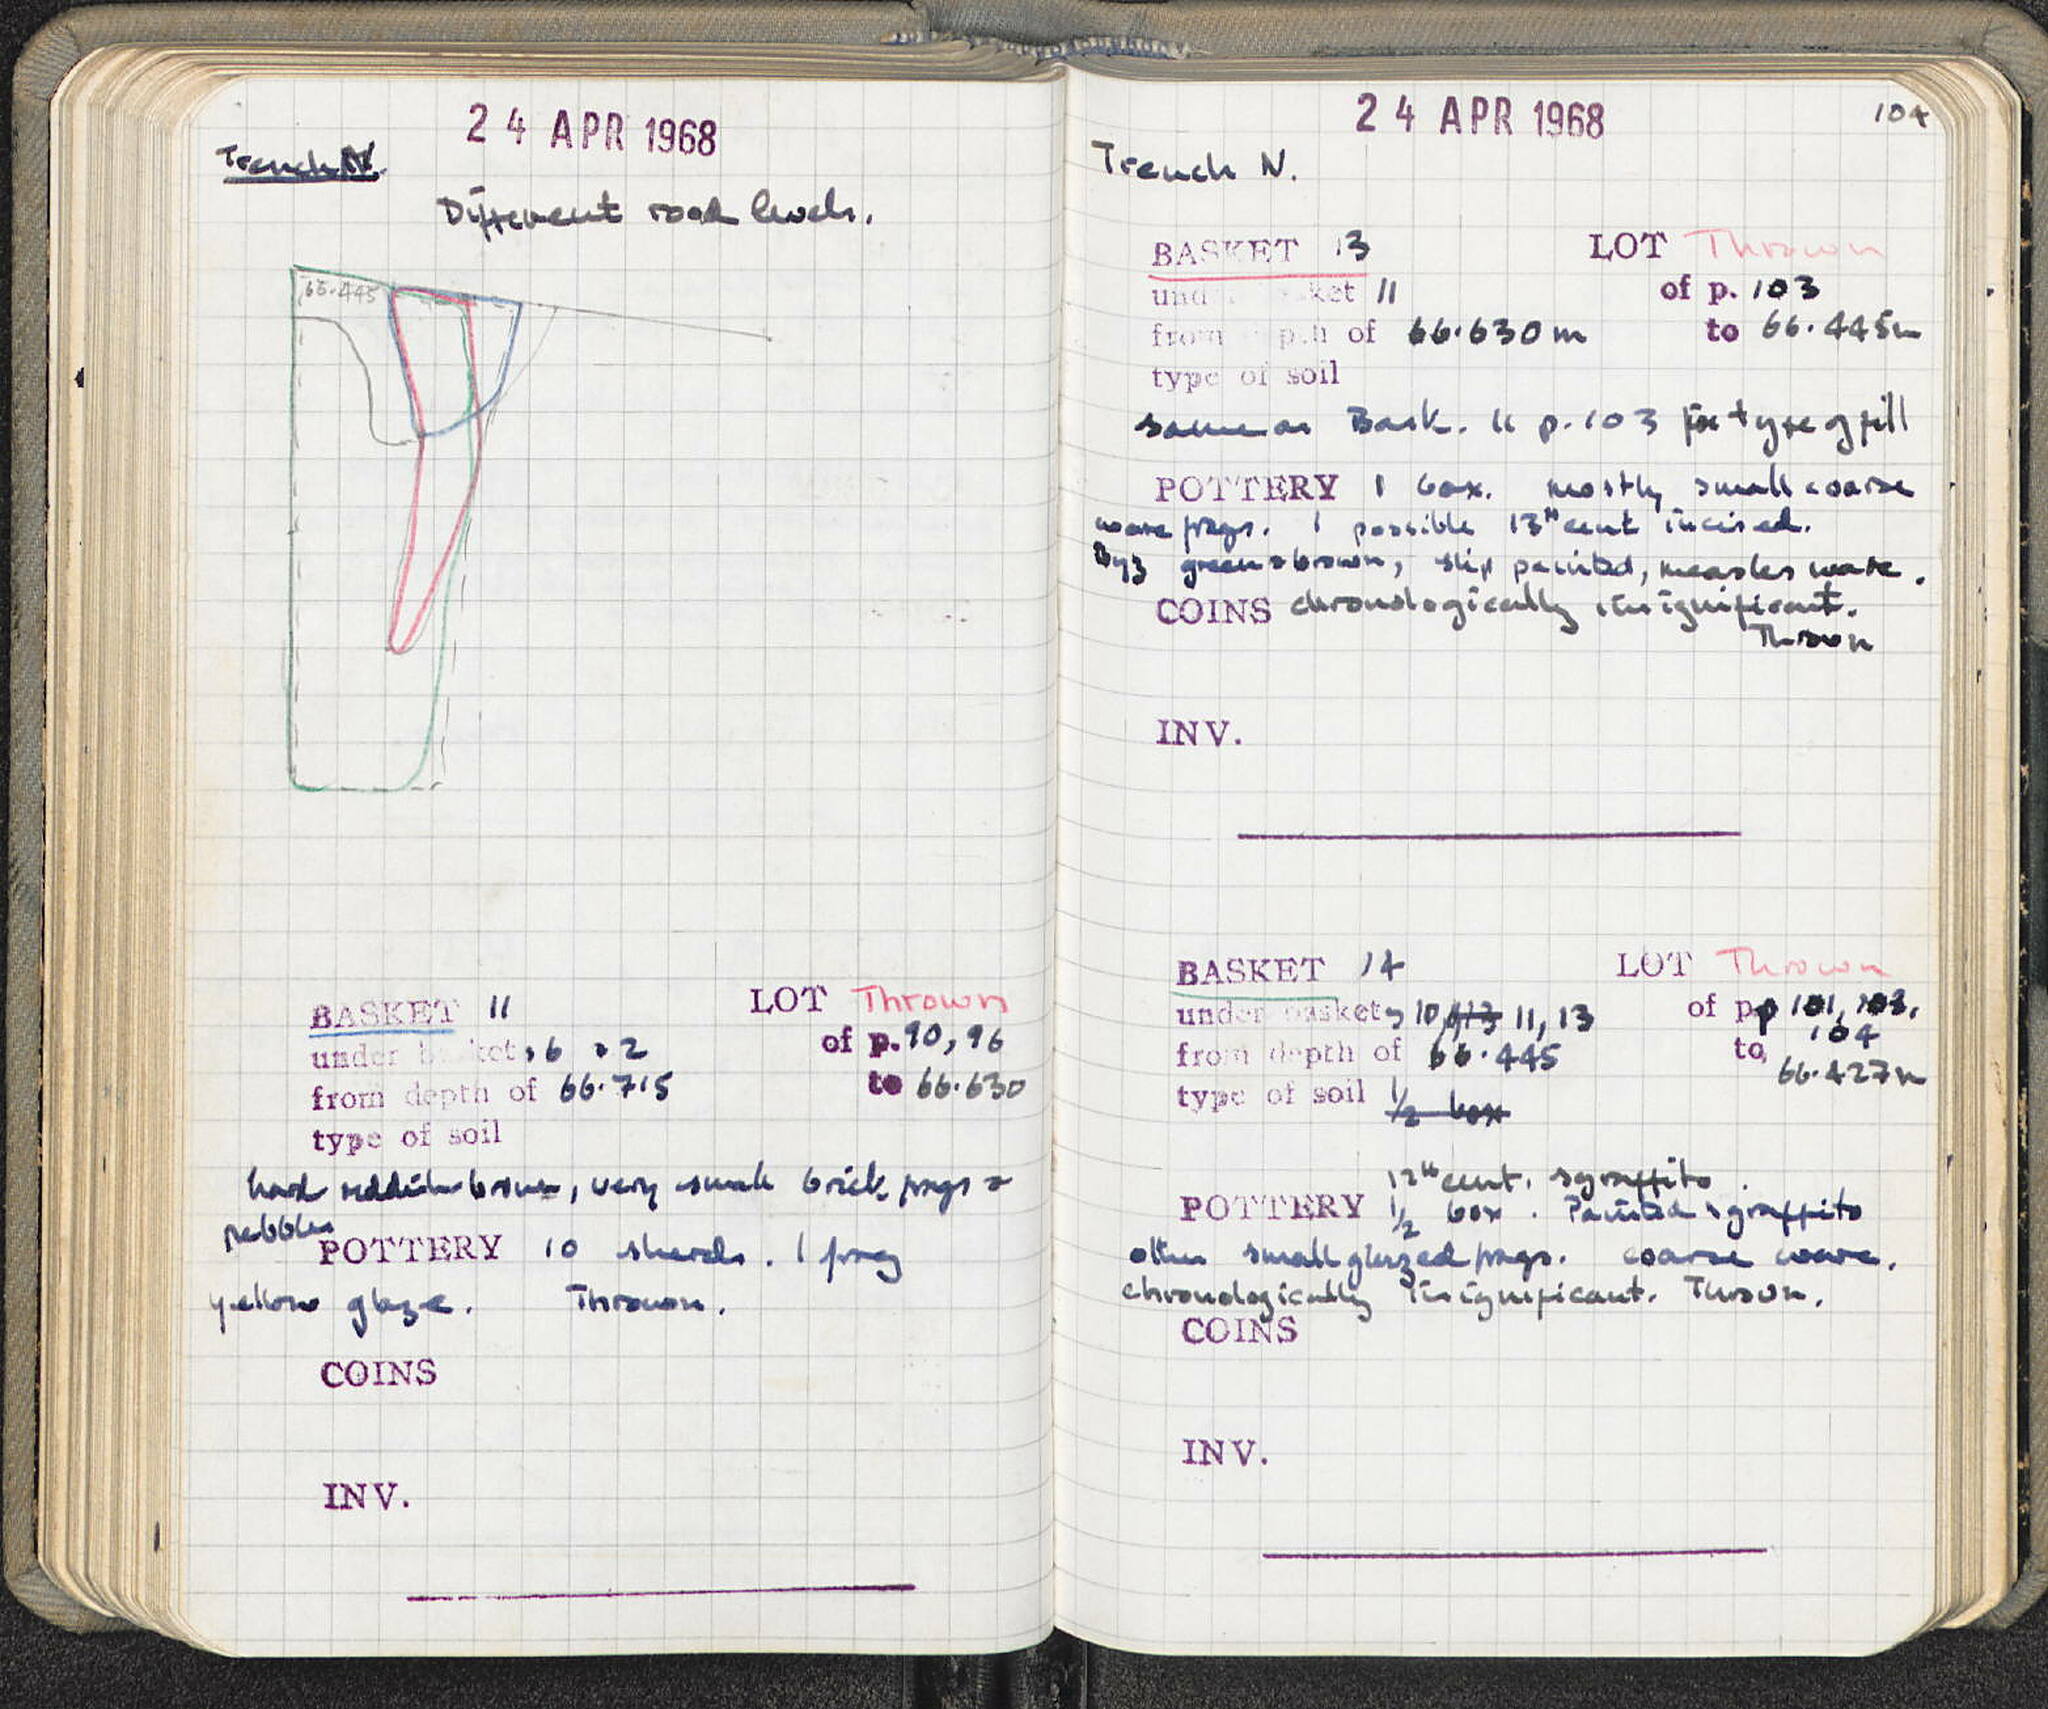 24 APR 1968
Trench N.
Different road levels.
66.445
BASKET 11 LOT Thrown
under baskets 6 2 of p. 90, 96
from depth of 66.715 to 66.630
type of soil
hard reddish brown, very small brick frags &
pebbles
POTTERY 10 sherds. 1 frag
yellow glaze. Thrown.
COINS
INV.
24 APR 1968
104
Trench N.
BASKET 13 LOT Thrown
under basket 11 of p. 103
from depth of 66.630m to 66.445m
type of soil
same as Bask. 11 p. 103 for type of fill
POTTERY 1 box. mostly small coarse
ware frags. 1 possible 13th cent incised.
Byz green & brown, slip painted, measles ware.
COINS chronologically insignificant.
Thrown
INV.
BASKET 14 LOT Thrown
under baskets 10, 11, 13 of pp 101, 103,
104
from depth of 66.445 to 66.427m
type of soil 1/2 box
12th cent. sgraffito.
POTTERY 1/2 box. Painted sgraffito
other small glazed frags. coarse ware.
chronologically insignificant. Thrown.
COINS
INV.